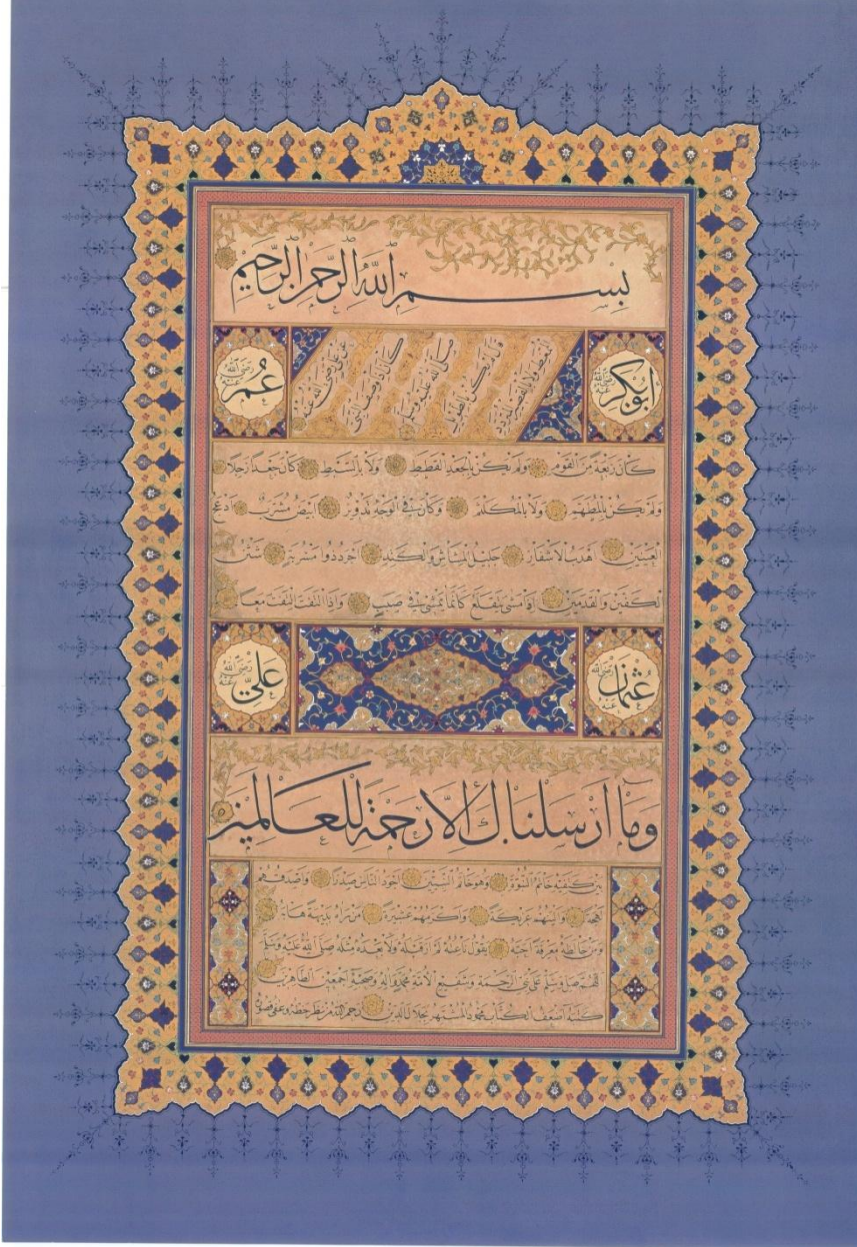 بسم الله الرحمن الرحيم
ابو بكر رضي الله عنه
عمر رضي الله عنه
عن علي رضي الله عنه
كان اذا وصف النبي
صلى الله عليه وسلم
قال لم يكن بالطويل
الممغط ولا بالقصير المتردد
كان ربعة من القوم ولم يكن بالجعد القطط ولا بالسبط كان جعدا رجلا
ولم يكن بالمطهم ولا بالمكلثم وكان في الوجه تدوير ابيض مشرب ادعج
العينين اهدب الاشفار جليل المشاش والكتد اجرد ذو مسربة شثن
الكفين والقدمين اذا مشى يتقلع كانما يمشي في صبب واذا التفت التفت معا
عثمان رضي الله عنه
علي رضي الله عنه
وما ارسلناك الا رحمة للعالمين
بين كتفيه خاتم النبوة وهو خاتم النبيين اجود الناس صدرا واصدقهم
لهجة والينهم عريكة واكرمهم عشيرة من رآه بديهة هابه
ومن خالطه معرفة احبه يقول ناعته لم ار قبله ولا بعده مثله صلى الله عليه وسلم
اللهم صل وسلم على نبي الرحمة وشفيع الامة محمد وآله وصحبه اجمعين الطاهرين
كتبه اضعف الكتاب محمود المشتهر بجلال الدين رحم الله من نظر خطه وعفى